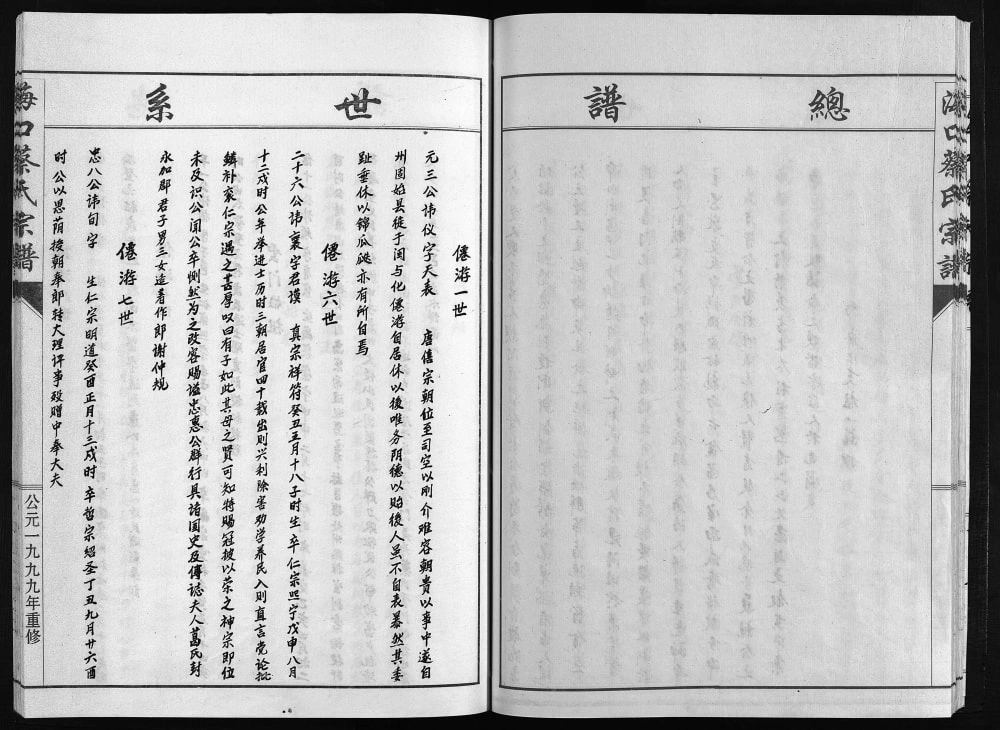 總譜
世系
僊游一世
元三公讳仪字天表 唐僖宗朝位至司空以刚介难容朝贵以事中遂自
州固始县徙于闽与化僊游自居休以後唯务阴德以贻後人虽不自表暴然其委
趾垂休以锦瓜瓞亦有所自焉
僊游六世
二十六公讳襄字君谟 真宗祥符癸丑五月十八子时生卒仁宗熙宁戊申八月
十二戌时公年举进士历时三朝居官四十载出则兴利除害劝学养民入则直言党论批
鳞补衮仁宗遇之甚厚叹曰有子如此其母之贤可知特赐冠披以荣之神宗即位
未及识公闻公卒恻然为之改容赐谥忠惠公群行具诸国史及傳誌夫人葛氏封
永加郡君子男三女适著作郎谢仲规
僊游七世
忠八公讳旬字 生仁宗明道癸酉正月十三戌时卒哲宗绍圣丁丑九月廿六酉
时公以恩荫授朝奉郎转大理评事殁赠中奉大夫
海口蔡氏宗譜
公元一九九九年重修
海口蔡氏宗譜